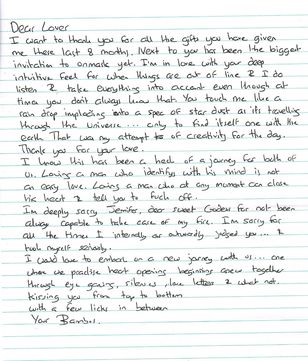 Dear Lover
I want to thank you for all the gifts you have given
me these last 8 months. Next to you has been the biggest
invitation to yet. I'm in love with your deep
intuitive feel for when things are out of line & I do
listen & take everything into account even though at
times you don't always know that. You touch me like a
rain drop imploding onto a spec of star dust as its travelling
through the universe ... only to find itself one with the
earth. That was my attempt to of creativity for the day.
Thank you for your love.
I know this has been a heck of a journey for both of
us. Loving a man who identifys with his mind is not
an easy love. Loving a man who at any moment can close
his heart & tell you to fuck off.
I'm deeply sorry Jenifer, dear sweet for not been
always capable to take care of my fire. I'm sorry for
all the times I internally or outwardly judged you ... &
took myself seriously.
I would love to embark on a new journey with us ... one
where we practise heart opening beginnings anew together
through eye gazing, silences, love letters & what not.
Kissing you from top to bottom
with a few licks in between
Your